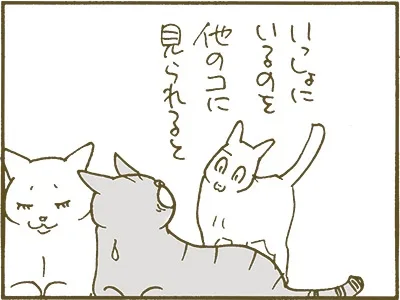 いっしょに
いるのを
他のコに
見られると